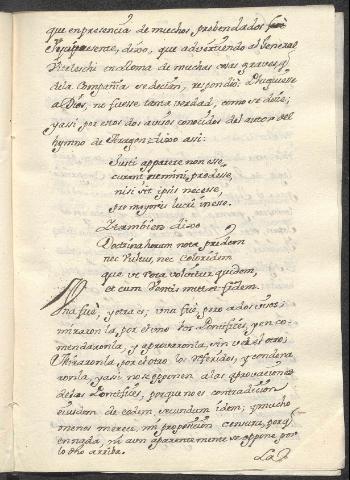 que en presencia de muchos prebendados
presente, dixo, que advertiendo al General
Viteleschi en Roma de muchas cosas graves q
de la Compañia se decian, respondió: Pluguiesse
a Dios, no fuesse tanta verdad, como se dice;
y assi por estos dos avisos conocidos del autor del
hymno de Aragon dixo assi:
student apparere non esse,
curant nemini prodesse,
nisi sit ipsis necesse,
pro majoris lucri messe.
I tambien dixo
Doctrina horum nota pridem
nec vultus, nec color idem
que ut rota volvitur quidem,
et cum ventis mutat fidem.
Una fuè, y otra es; una fuè, pero a dos visos;
miraronla, por el uno los Pontifices, y en co-
mendaronla, y aprovaronla, sin ver el otro;
Miraronla, por el otro los referidos, y condena
ronla, y assi no se opponen a las aprovaciones
de los Pontifices, porque no es contradicion
eiusdem de eodem secundum idem; y mucho
menos merece, mi proposicion censura, porq
en nada, ni aun aparentemente se oppone por
lo dho arriba.
La